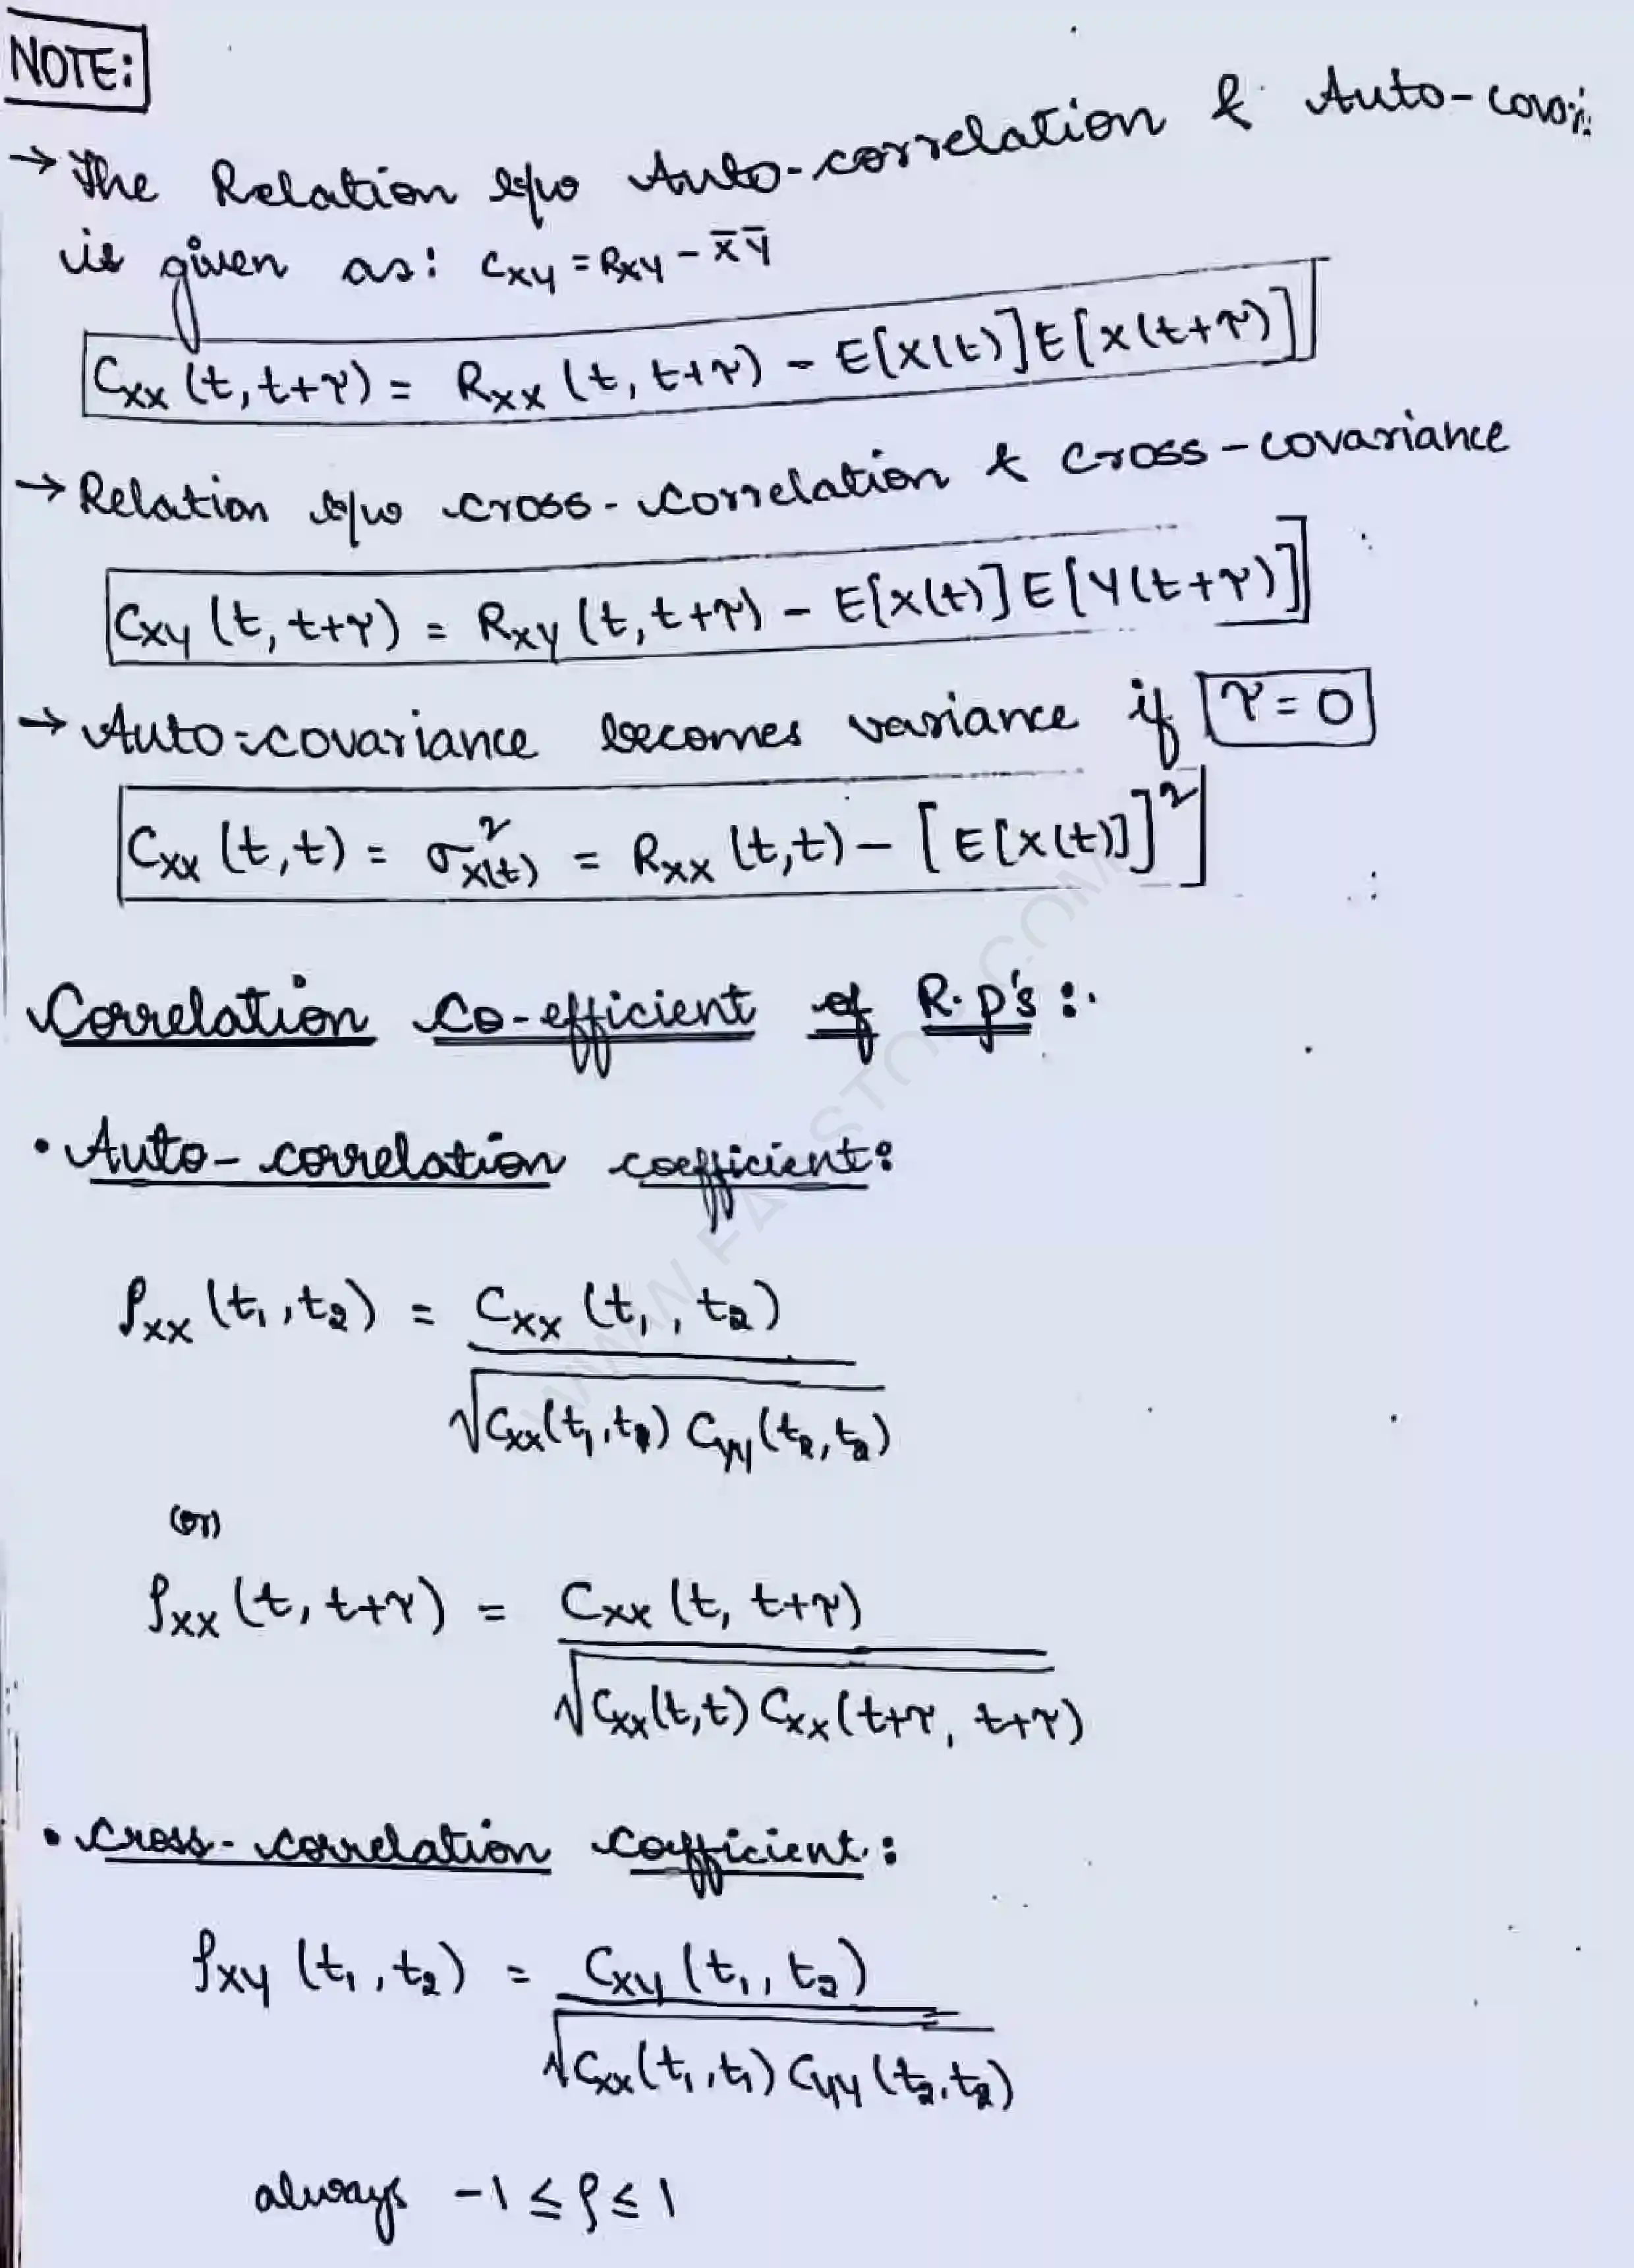 NOTE:
→ The Relation b/w Auto-correlation & Auto-covari
is given as: CXY = RXY - X̄ Ȳ
CXX (t, t+τ) = RXX (t, t+τ) - E[X(t)] E[X(t+τ)]
→ Relation b/w cross-correlation & cross-covariance
CXY (t, t+τ) = RXY (t, t+τ) - E[X(t)] E[Y(t+τ)]
→ Auto-covariance becomes variance if τ = 0
CXX (t,t) = σ²X(t) = RXX (t,t) - [E[X(t)]]²
Correlation Co-efficient of R.p's :.
• Auto-correlation coefficient:
ρXX (t1, t2) = CXX (t1, t2)
√CXX(t1, t1) CYY(t2, t2)
(or)
ρXX (t, t+τ) = CXX (t, t+τ)
√CXX(t,t) CXX(t+τ, t+τ)
• Cross-correlation coefficient:
ρXY (t1, t2) = CXY (t1, t2)
√CXX(t1, t1) CYY(t2, t2)
always -1 ≤ ρ ≤ 1